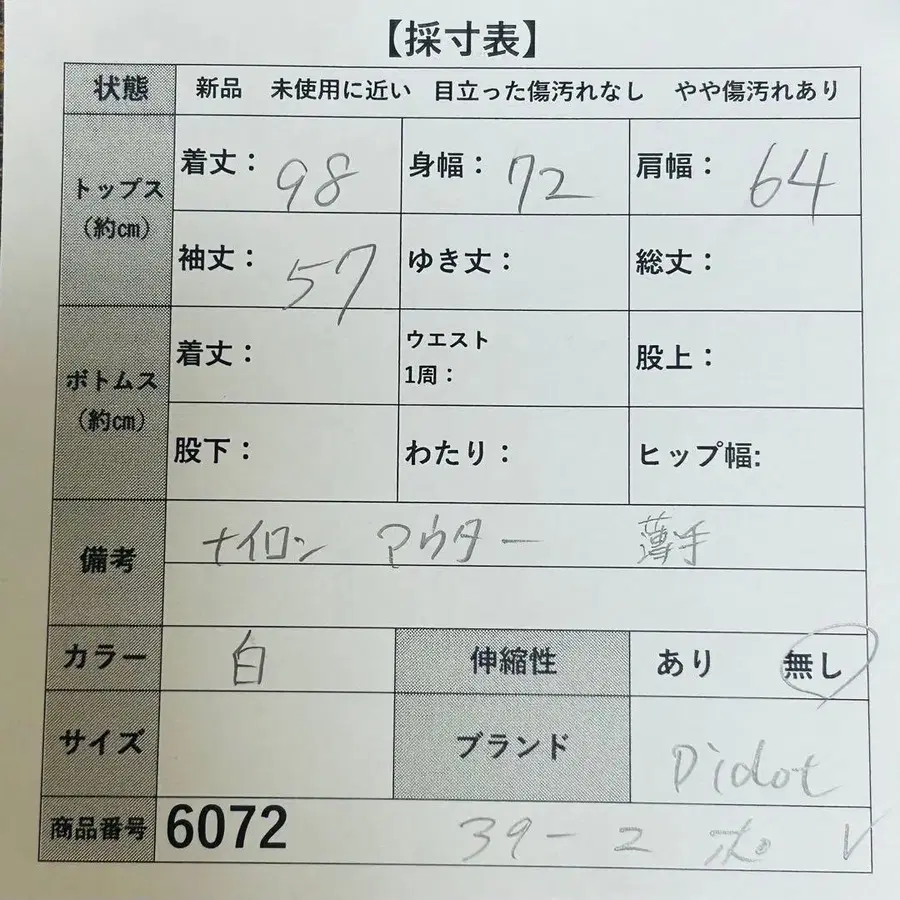 【採寸表】
状態 新品 未使用に近い 目立った傷汚れなし やや傷汚れあり
トップス
(約cm)
着丈： 98 身幅： 72 肩幅： 64
袖丈： 57 ゆき丈： 総丈：
ボトムス
(約cm)
着丈： ウエスト
1周： 股上：
股下： わたり： ヒップ幅:
備考 ナイロン アウター 薄手
カラー 白 伸縮性 あり 無し
サイズ ブランド Didot
商品番号 6072 39-2 ポ V